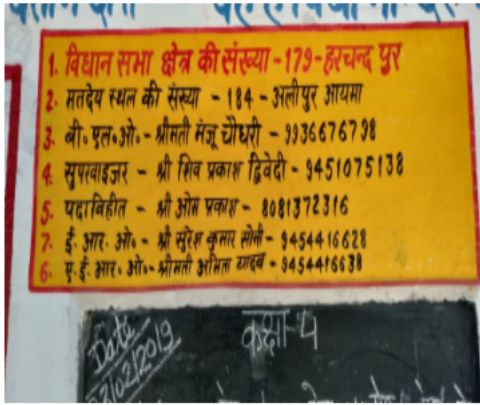 1. विधान सभा क्षेत्र की संख्या - 179 - हरचन्द पुर
2. मतदेय स्थल की संख्या - 184 - अलीपुर आयमा
3. बी॰ एल॰ ओ॰ - श्रीमती मंजू चौधरी - 9936676798
4. सुपरवाइजर - श्री शिव प्रकाश द्विवेदी - 9451075138
5. पदाविहीत - श्री ओम प्रकाश - 8081372316
7. ई॰ आर॰ ओ॰ - श्री सुरेश कुमार सोनी - 9454416628
6. ए॰ ई॰ आर॰ ओ॰ - श्रीमती अमिता यादव - 9454416638
Date
02/2019
कक्षा-4